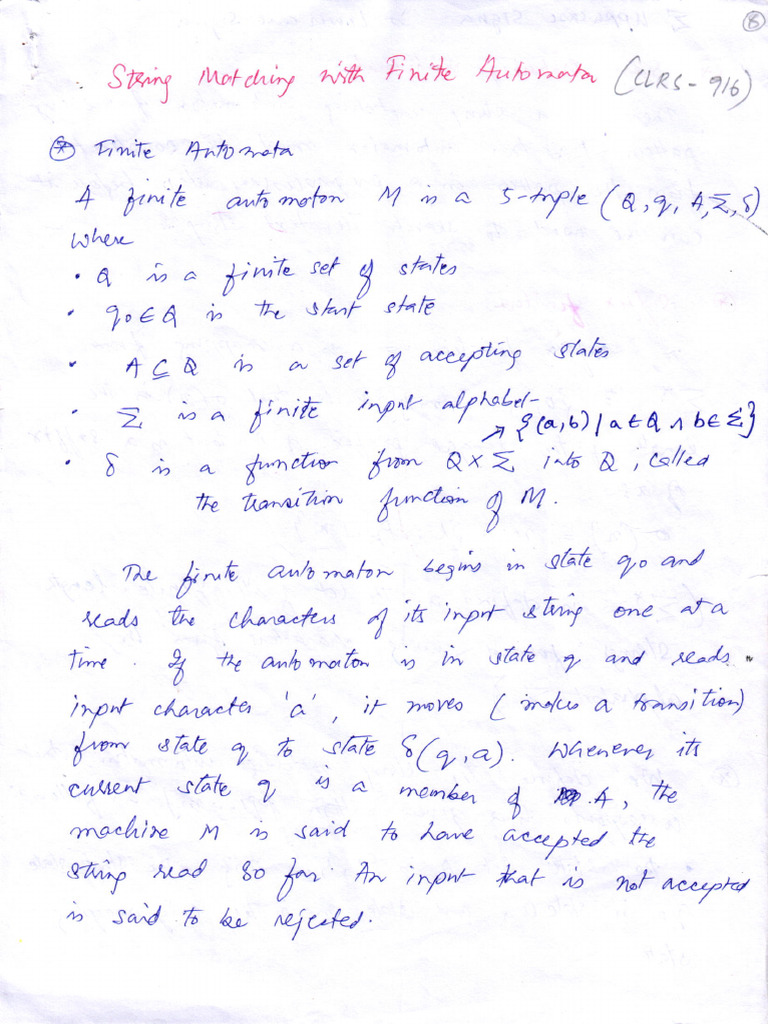 8
String Matching with Finite Automata (CLRS - 916)
* Finite Automata
A finite automaton M is a 5-tuple (Q, q, A, Σ, δ)
where
• Q is a finite set of states
• q0 ∈ Q is the start state
• A ⊆ Q is a set of accepting states
• Σ is a finite input alphabet
→ {(a,b) | a ∈ Q ∧ b ∈ Σ}
• δ is a function from Q × Σ into Q, called
the transition function of M.
The finite automaton begins in state q0 and
reads the characters of its input string one at a
time. If the automaton is in state q and reads
input character 'a', it moves (makes a transition)
from state q to state δ(q,a). Whenever its
current state q is a member of A, the
machine M is said to have accepted the
string read so far. An input that is not accepted
is said to be rejected.